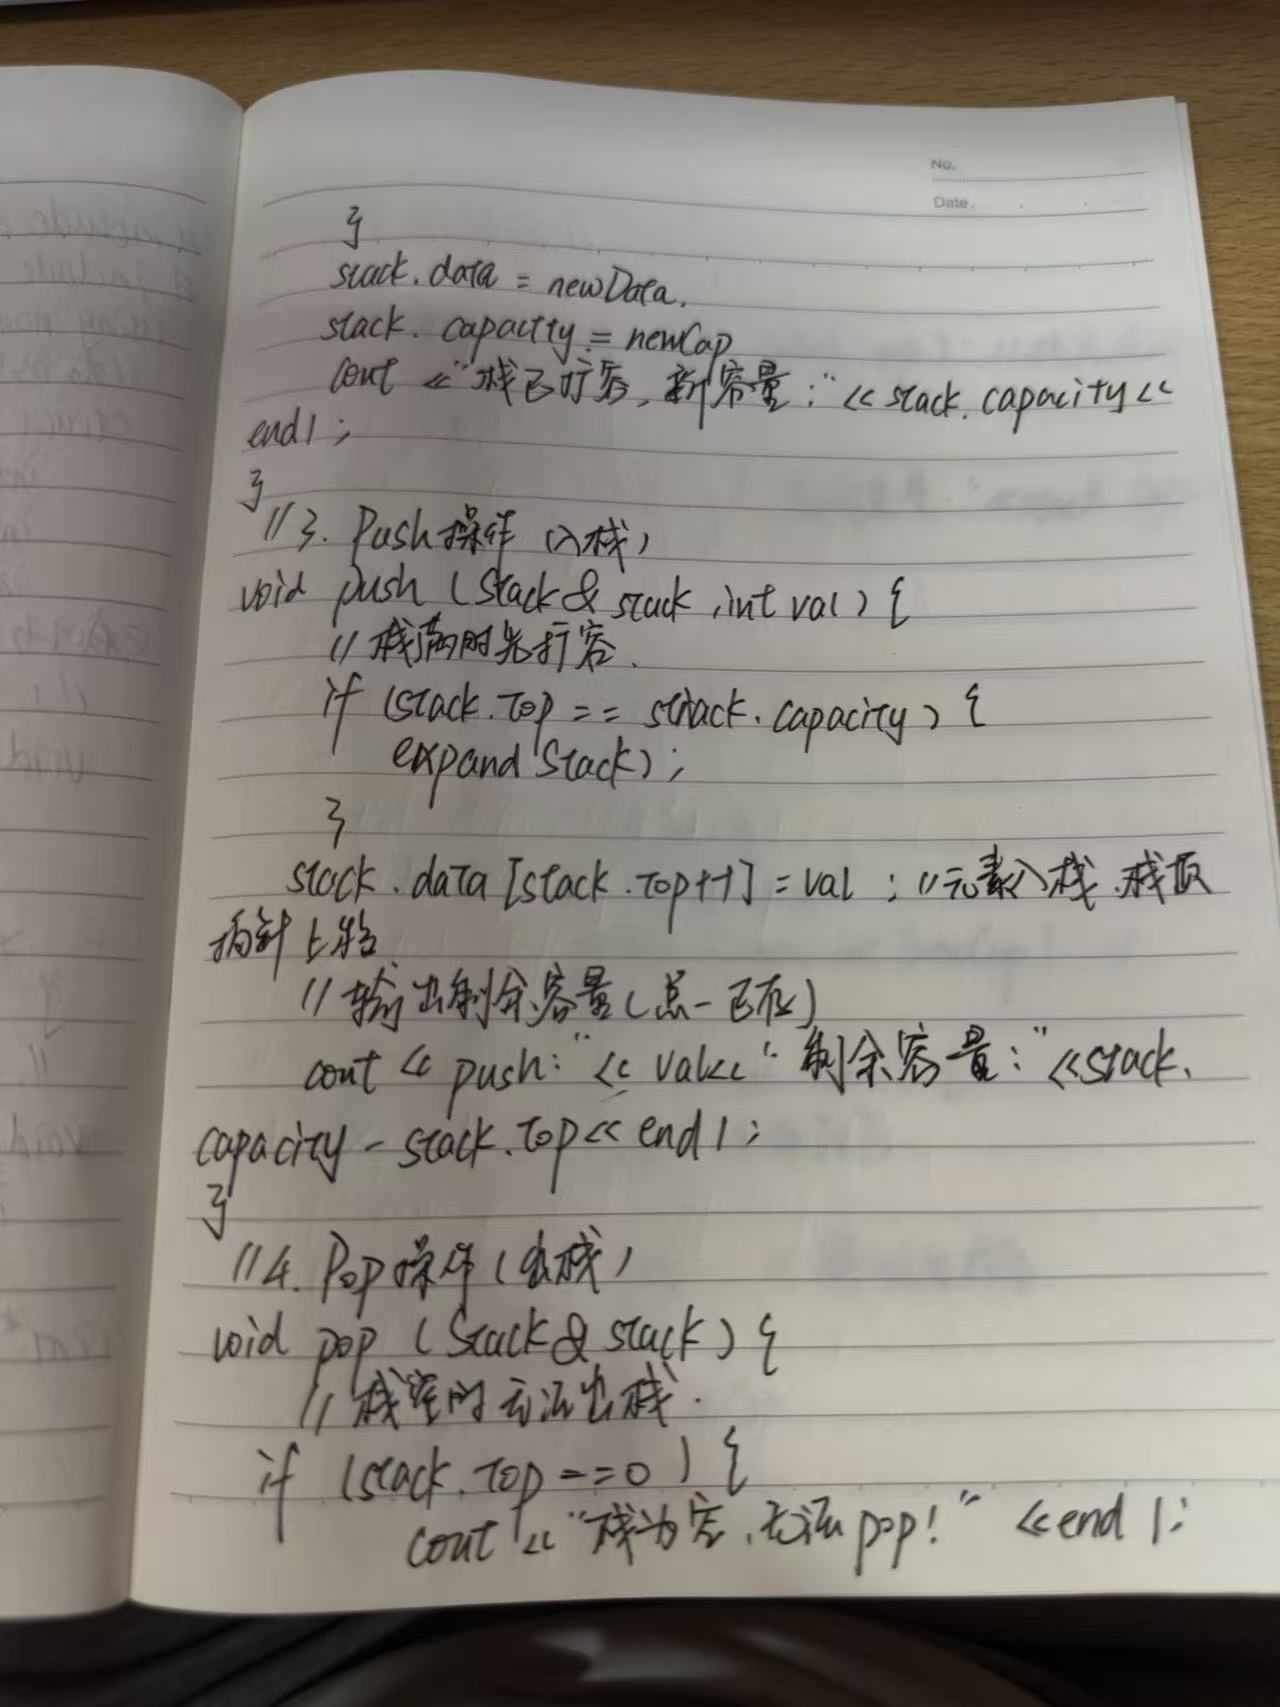 No.
Date.
}
stack.data = newData.
stack. capacity = newCap
cout << "栈已扩容, 新容量:" << stack. capacity <<
endl;
}
//3. Push操作 (入栈)
void push (Stack& stack, int val) {
// 栈满时先扩容.
if (stack.top == stack. capacity) {
expand Stack);
}
stack.data [stack.top++] = val ; //元素入栈,栈顶
指针上移
// 输出剩余容量(总-已存)
cout << push: "<< val<< " 剩余容量:" <<stack.
capacity - stack.top << endl;
}
//4. Pop操作 (出栈)
void pop (Stack& stack) {
// 栈空时无法出栈.
if (stack.top ==0) {
cout << "栈为空,无法pop!" <<endl;